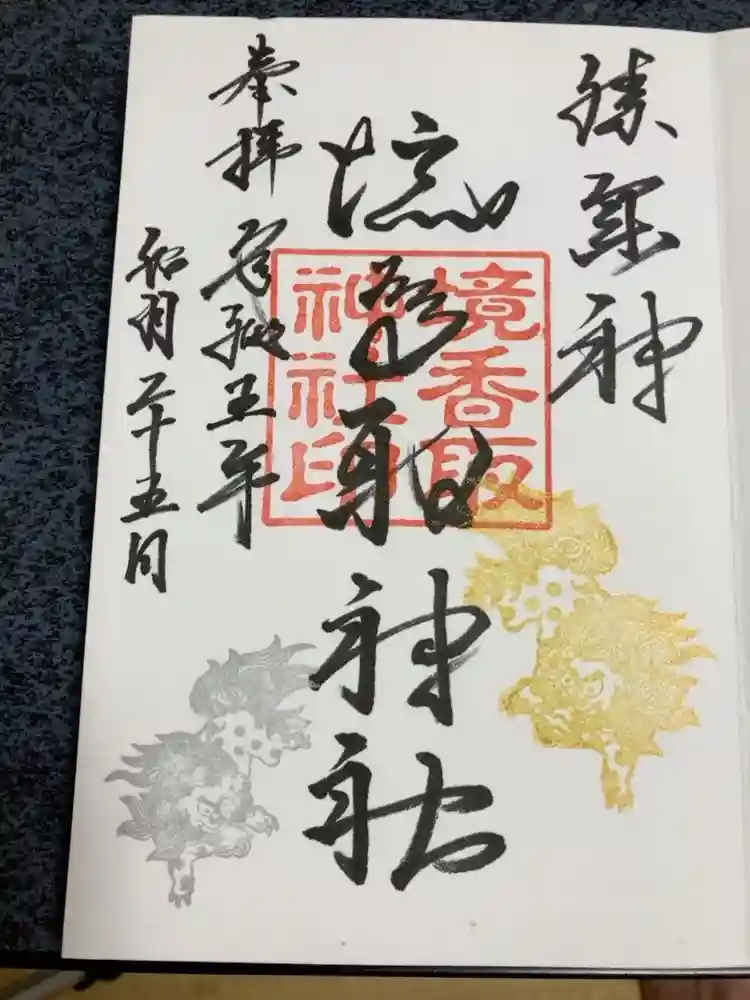 勝軍神
境香取神社
境香取
神社印
奉拝 令和五年
月二十五日